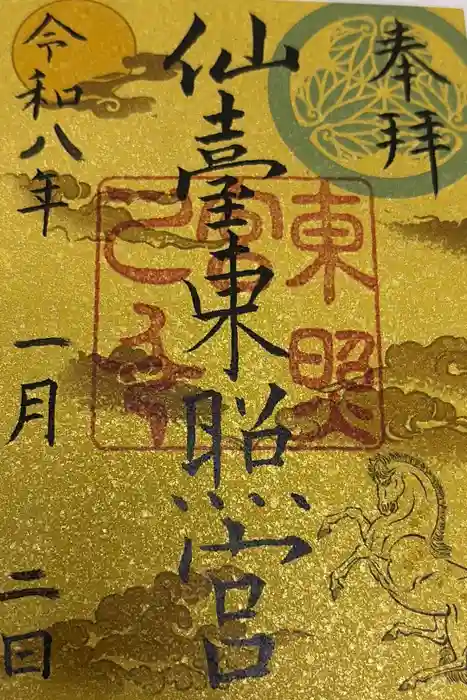 奉拝
仙臺東照宮
令和八年
一月
二日
東照
宮